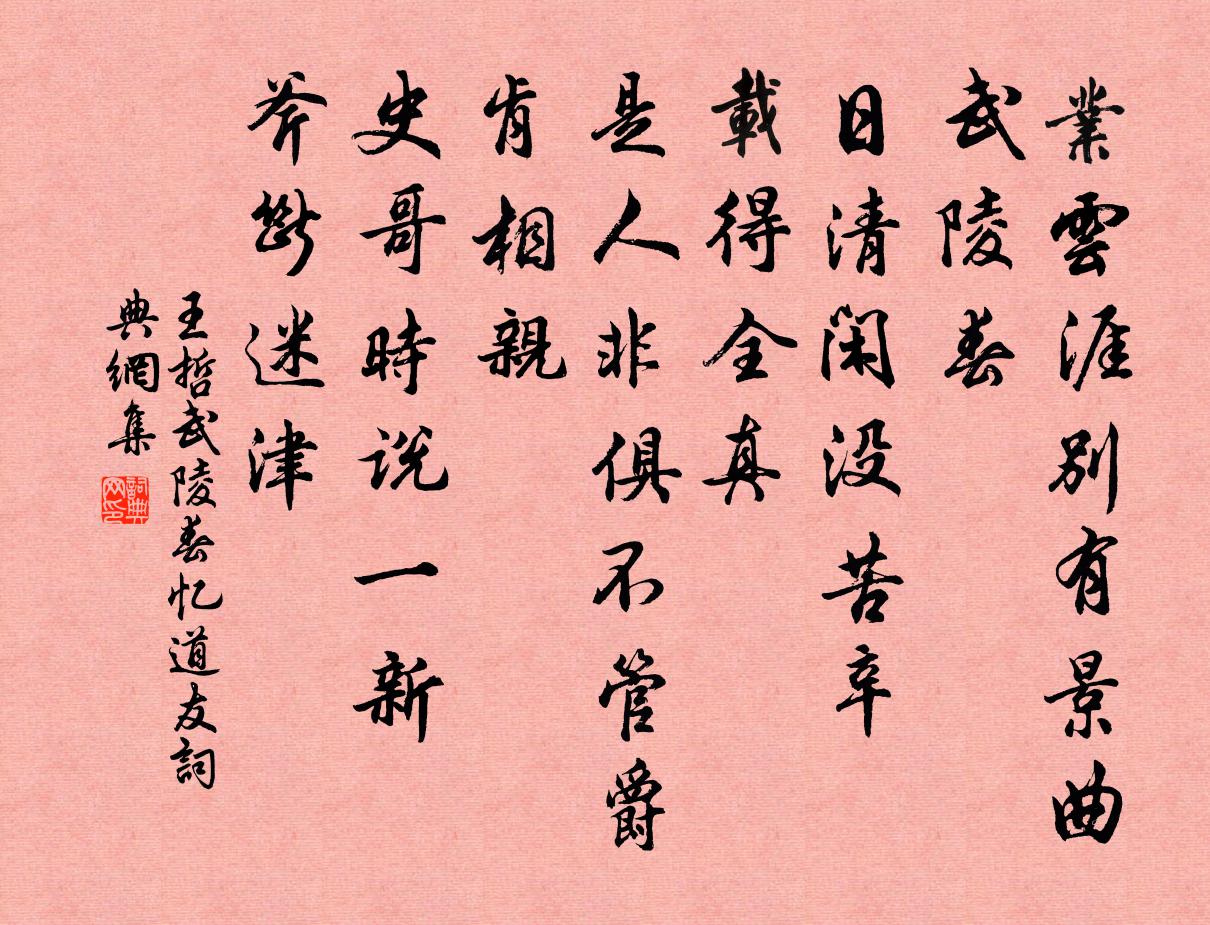 業雲涯別有景曲
武陵春
日清閑没苦辛
載得全真
是人非俱不管爵
肯相親
史哥時説一新
斧斷迷津
王哲武陵春忆道友詞
典網集
詞典网印